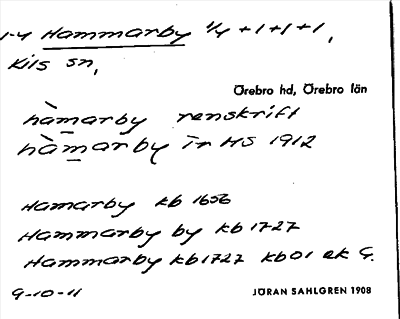 1-4 Hammarby 1/4 +1+1+1,
Kils sn,
Örebro hd, Örebro län
hàmarby renskrift
hàmarby Ir HS 1912
Hamarby kb 1656
Hammarby by kb 1727
Hammarby kb 1727 kb01 ek G.
9-10-11
JÖRAN SAHLGREN 1908